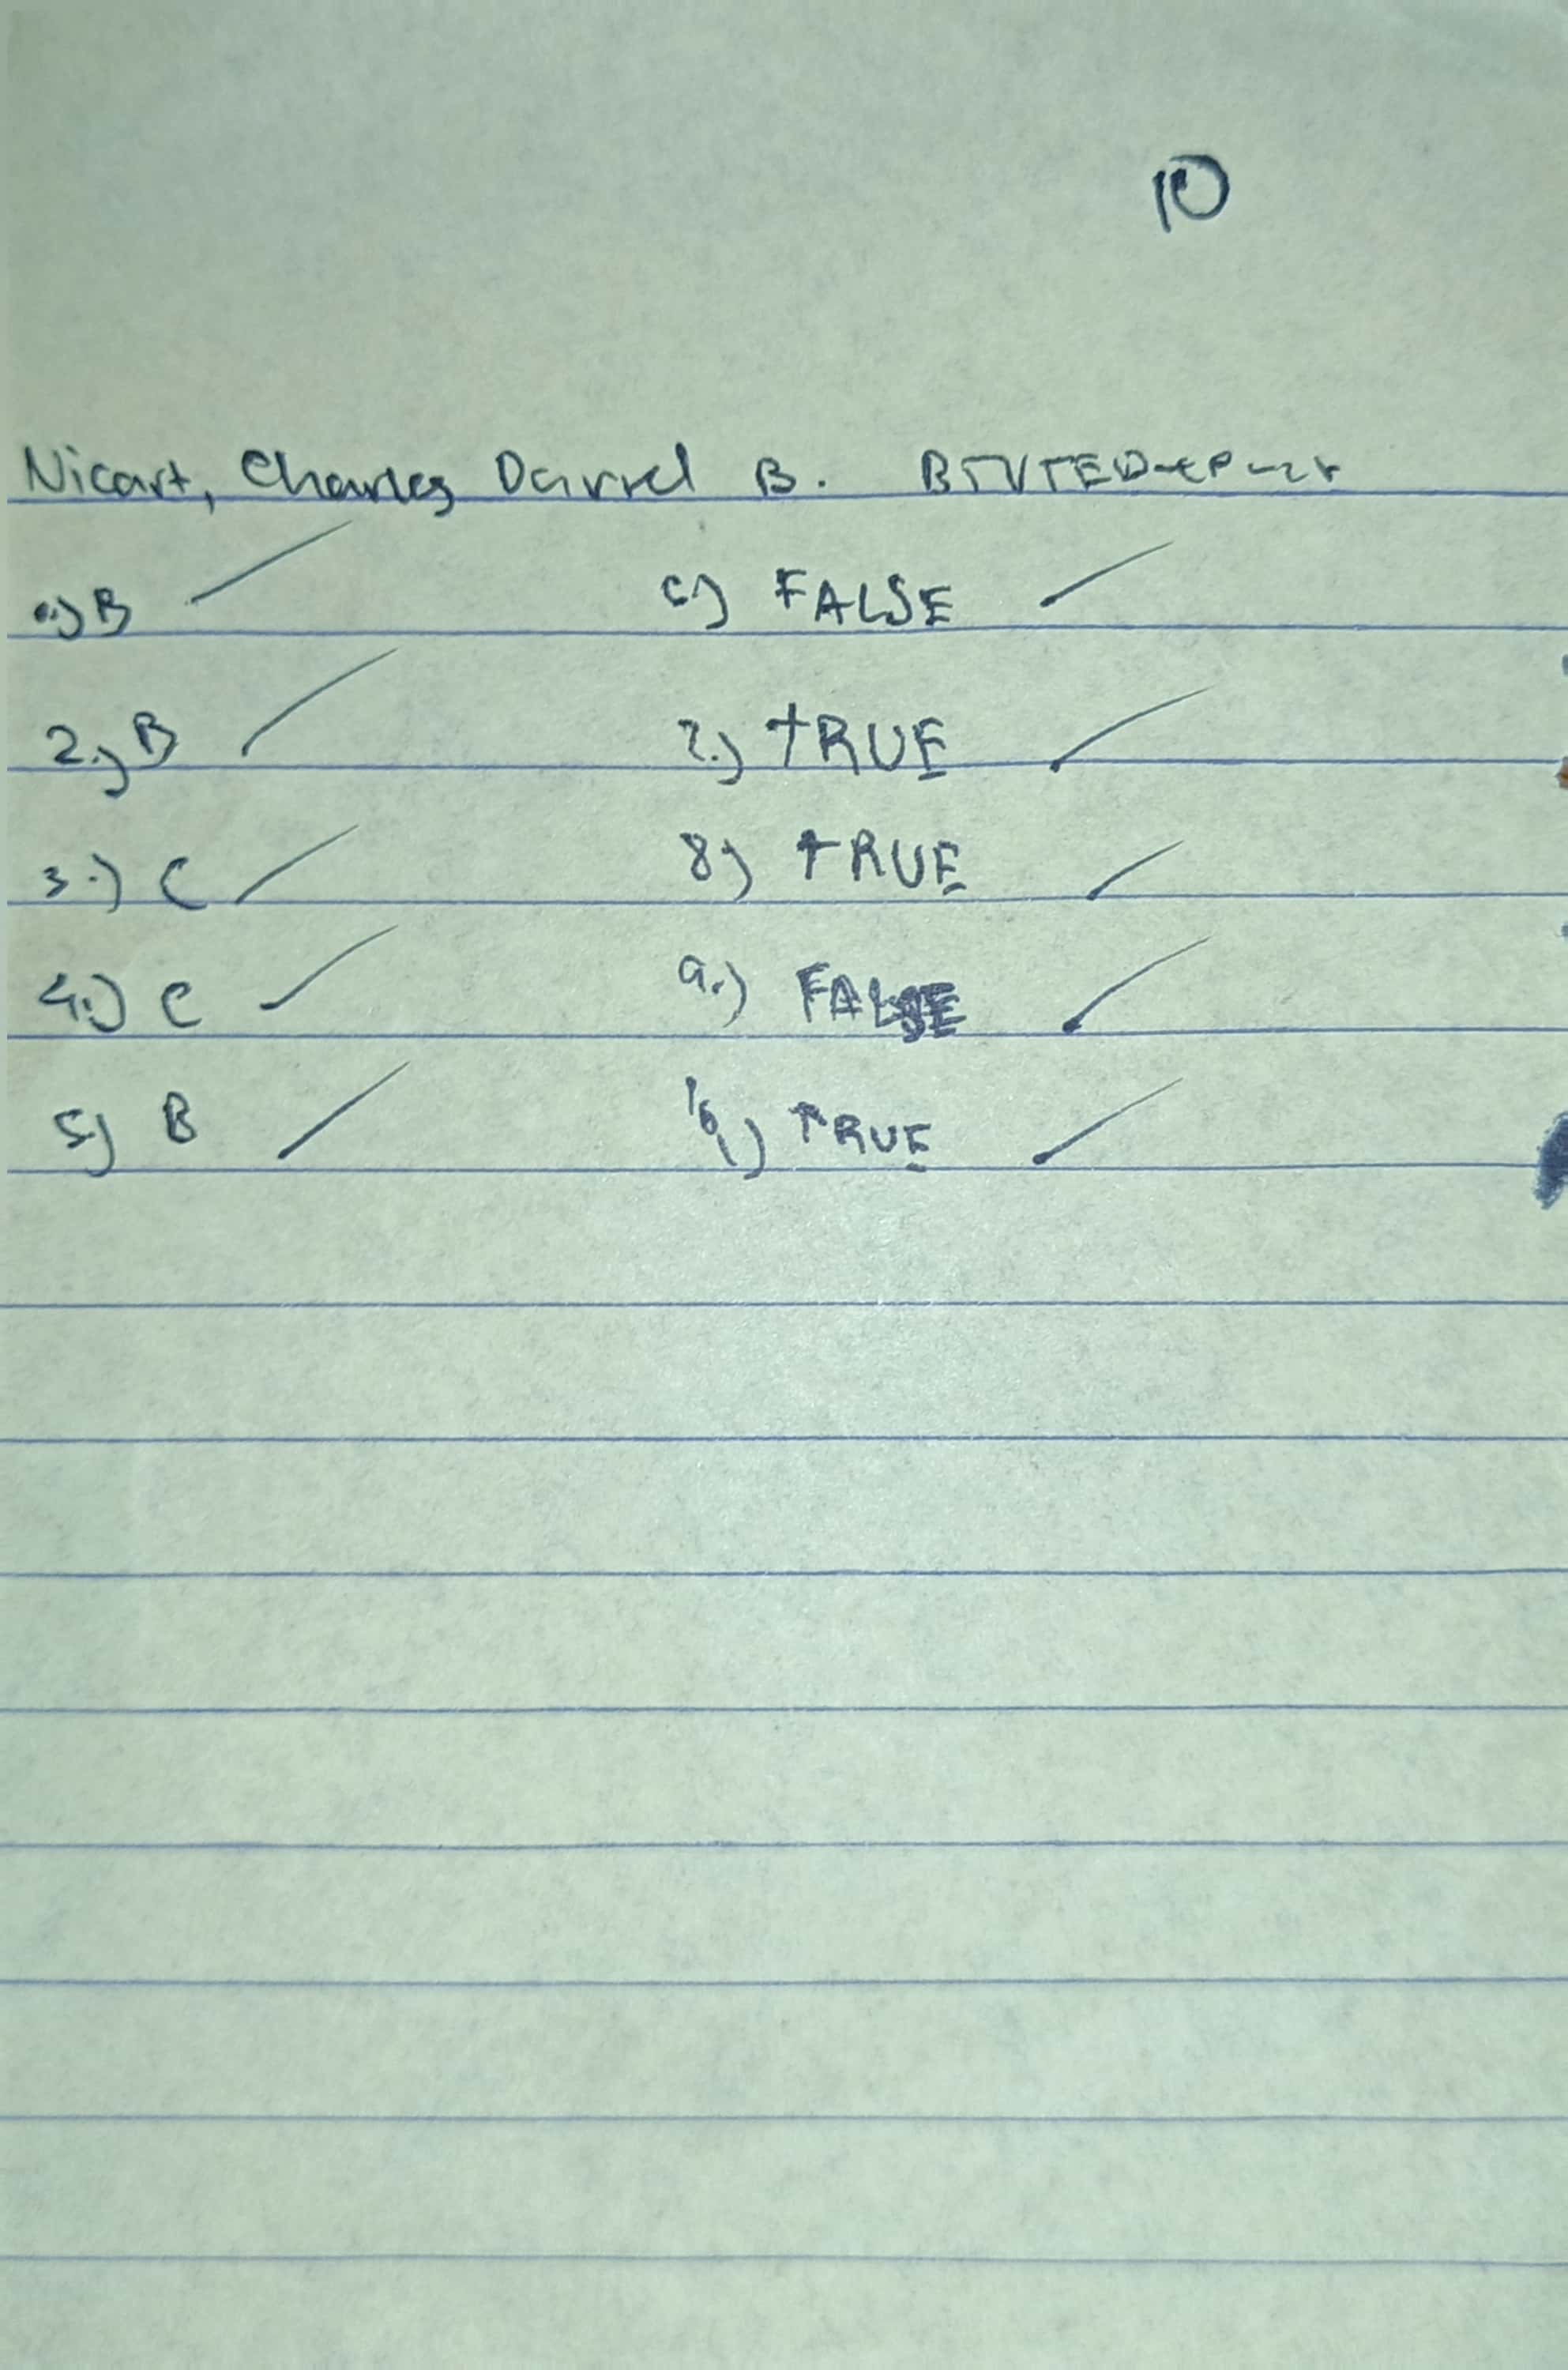 10
Nicart, Charles Darrel B. BTVTED
1.) B
2.) B
3.) C
4.) C
5.) B
6.) FALSE
7.) TRUE
8.) TRUE
9.) FALSE
10.) TRUE